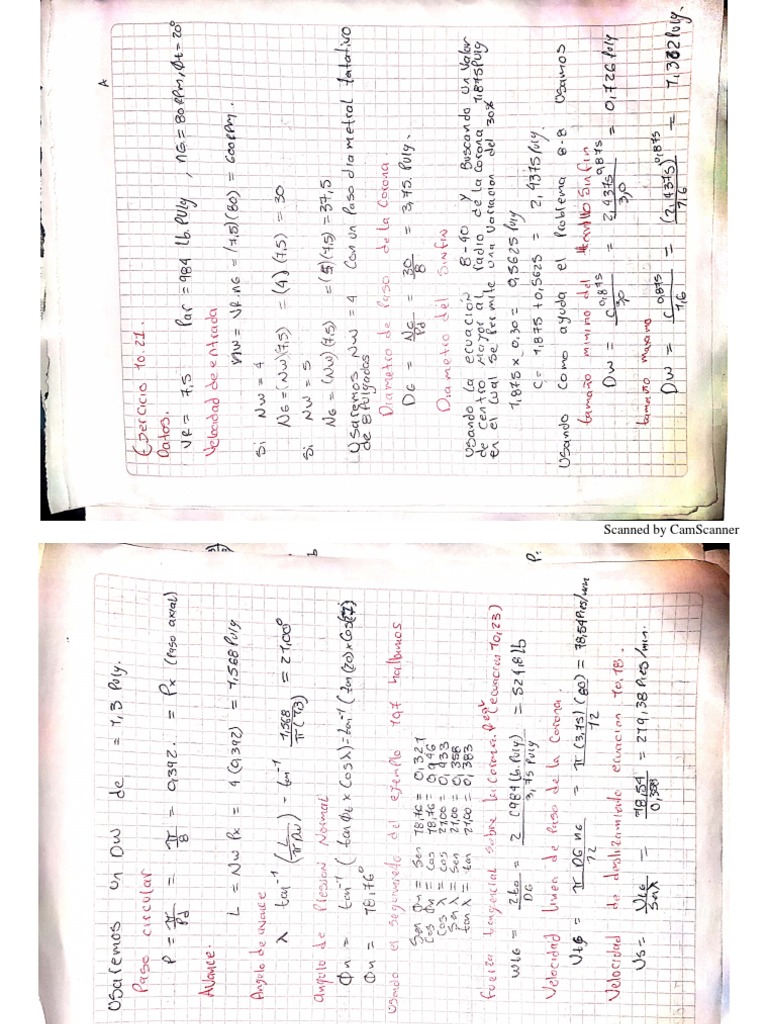 A
Ejercicio 10.21.
Datos.
VR = 7,5 Par = 984 lb.Pulg , nG = 80 RPM, Φt = 20°
Velocidad de entrada
nw = VR nG = (7,5)(80) = 600 RPM.
Si Nw = 4
NG = (Nw)(7,5) = (4)(7,5) = 30
Si Nw = 5
NG = (Nw)(7,5) = (5)(7,5) = 37,5
Usaremos Nw = 4 Con un Paso diametral tatativo
de 8 Pulgadas
Diametro de Paso de la Corona
DG = NG/Pd = 30/8 = 3,75 Pulg.
Diametro del Sinfin
Usando la ecuación 8-40 y Buscando un Valor
de Centro Mayor al radio de la Corona 1,875 Pulg
en el cual se Permite una Variacion del 30%
1,875 x 0,30 = 0,5625 Pulg
C = 1,875 + 0,5625 = 2,4375 Pulg.
Usando Como ayuda el Problema 8-8 Usamos
tamaño minimo del Sinfin
Dw = C^0,875/30 = 2,4375^0,875/3,0 = 0,726 Pulg
tamaño maximo
Dw = C^0,875/1,6 = (2,4375)^0,875/1,6 = 1,362 Pulg.
Scanned by CamScanner
Usaremos un Dw de = 1,3 Pulg.
Paso circular
P = π/Pd = π/8 = 0,392. = Px (Paso axial)
Avance.
L = Nw Px = 4 (0,392) = 1,568 Pulg
Angulo de avance
λ tan⁻¹ (L/πDw) = tan⁻¹ 1,568/π(1,3) = 21,00°
Angulo de Presion Normal
Φn = tan⁻¹ (tan Φt x Cos λ) = tan⁻¹ (tan(20) x Cos(21)
Φn = 18,76°
Usando el seguimiento del ejemplo 10,7 hallamos
Sen Φn = Sen 18,76 = 0,321
Cos Φn = Cos 18,76 = 0,946
Cos λ = cos 21,00 = 0,933
Sen λ = Sen 21,00 = 0,358
tan λ = tan 21,00 = 0,383
Fuerza tangencial sobre la Corona. (ecuacion 10,23)
WtG = 2To/DG = 2 (984 lb.Pulg)/3,75 Pulg = 524,8 lb
Velocidad linea de Paso de la Corona.
VtG = π DG nG/12 = π (3,75) (80)/12 = 78,54 Pies/min
Velocidad de deslizamiento ecuacion 10,18.
Vs = VtG/Sen λ = 78,54/0,358 = 219,38 Pies/min.
P.